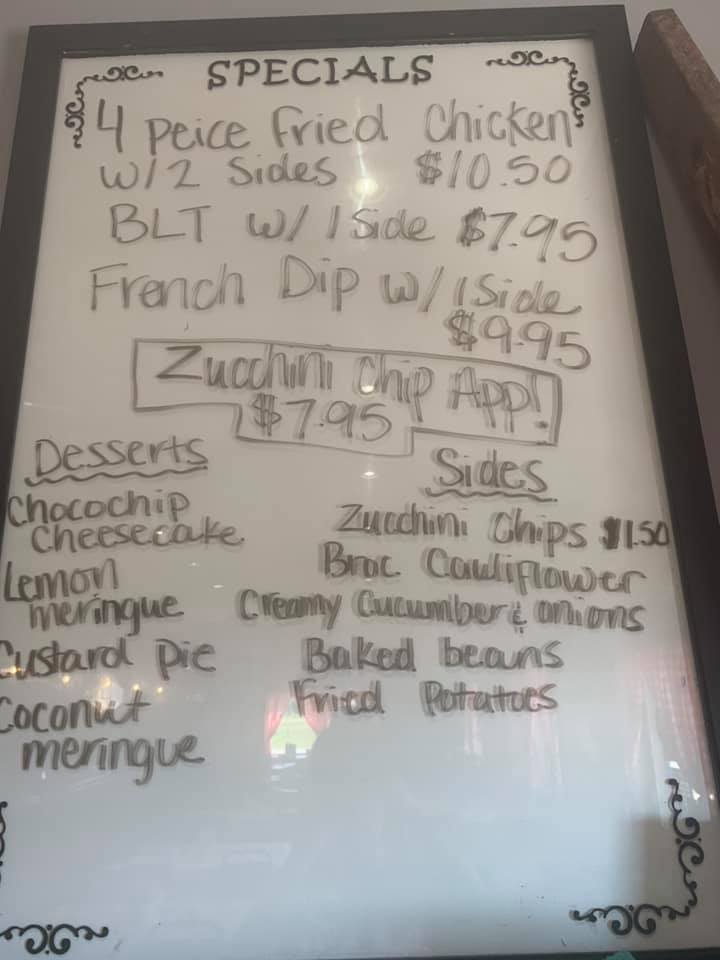 SPECIALS
4 peice fried Chicken
w/2 Sides $10.50
BLT w/ 1 Side $7.95
French Dip w/ 1 Side
$9.95
Zucchini Chip App!
$7.95
Desserts
Chocochip
Cheesecake
Lemon
meringue
Custard pie
Coconut
meringue
Sides
Zucchini Chips $1.50
Broc Cauliflower
Creamy Cucumber & onions
Baked beans
Fried Potatoes